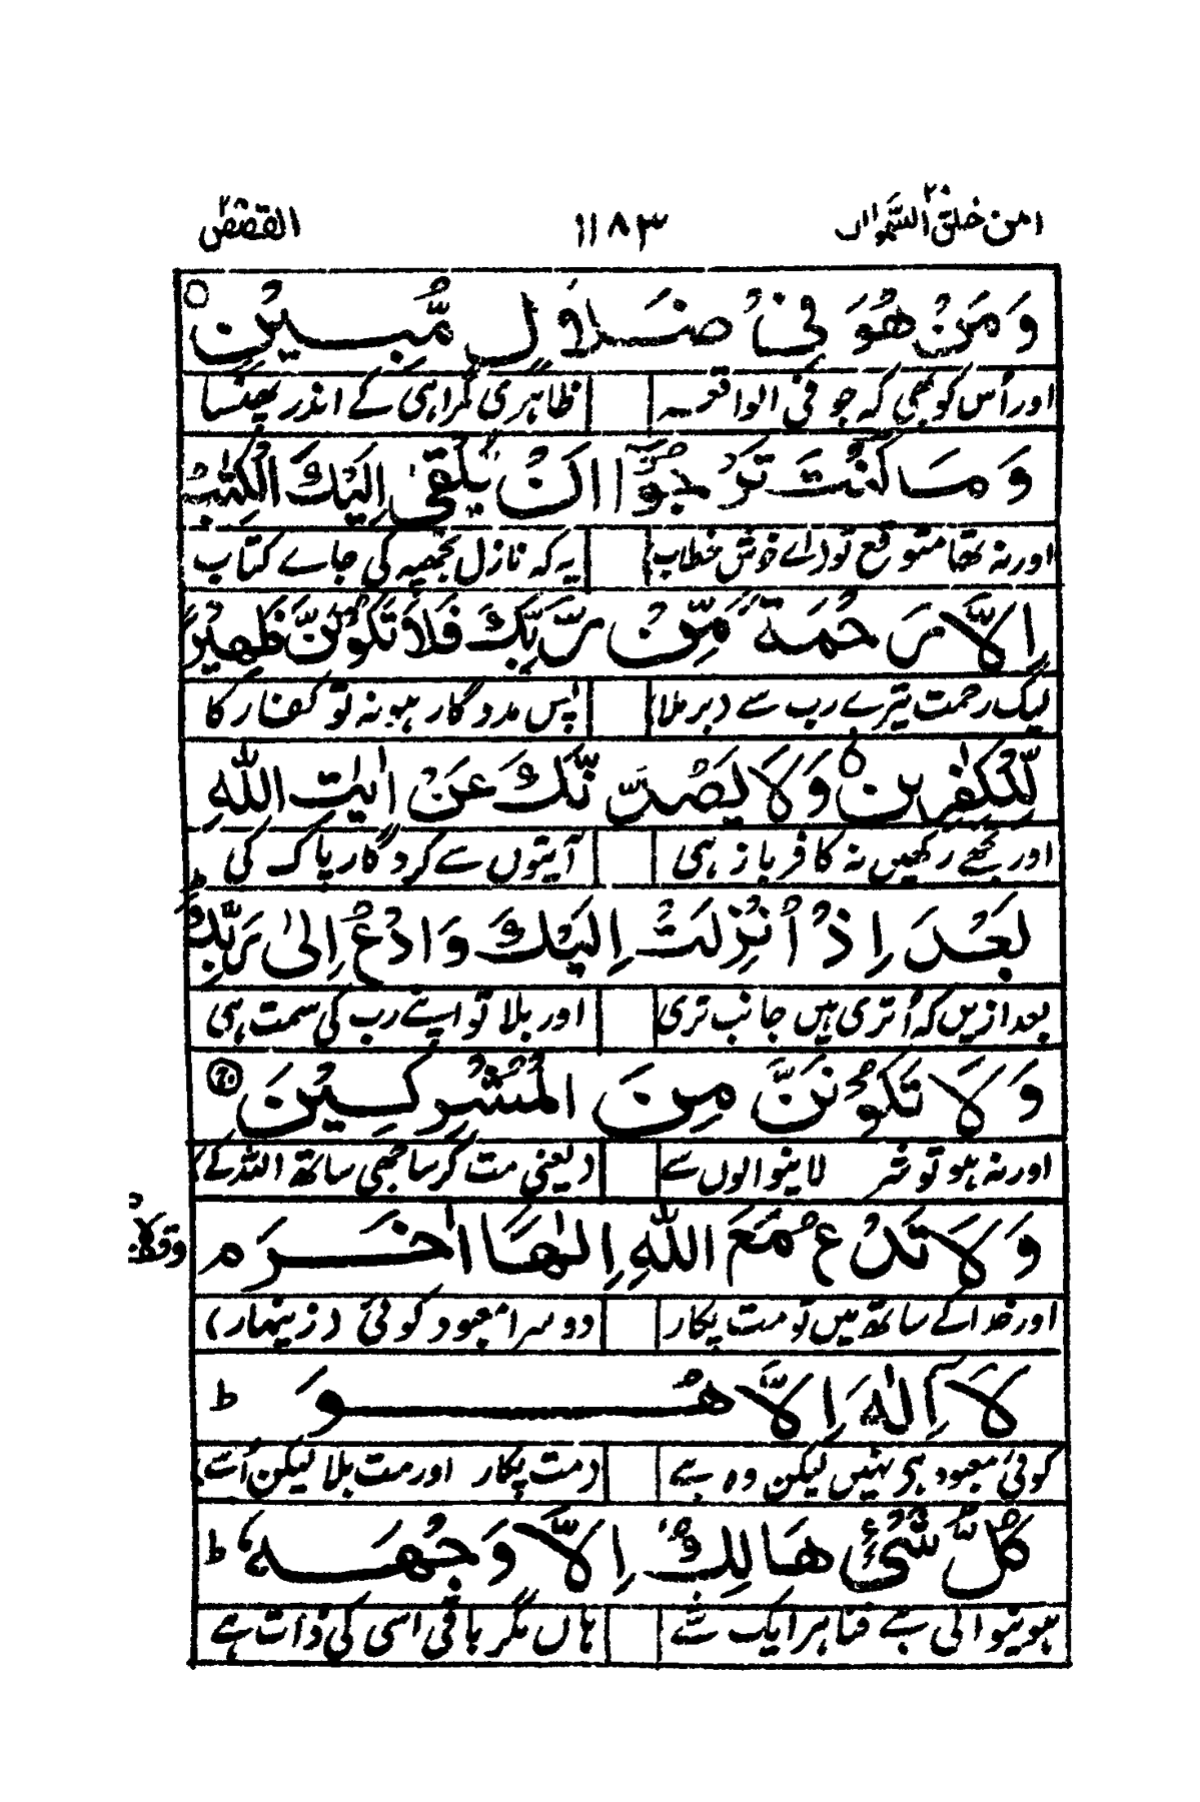 امن خلق السمٰوات ۲۰ ۱۱۸۳ القصص ۲۸
وَمَنْ هُوَ فِيْ ضَلَالٍ مُّبِيْنٍ ○
اور اُس کو بھی کہ جو فی الواقعہ ظاہری گمراہی کے اندر پھنسا
وَمَا كُنْتَ تَرْجُوْۤا اَنْ يُّلْقٰۤى اِلَيْكَ الْكِتٰبُ
اور نہ تھا متوقع تو (اے خوش خطاب) یہ کہ نازل تجھپہ کی جاے کتاب
اِلَّا رَحْمَةً مِّنْ رَّبِّكَ فَلَا تَكُوْنَنَّ ظَهِيْرًا
لیک رحمت تیرے رب سے (برملا) پس مددگار ہو نہ تو کفار کا
لِّلْكٰفِرِيْنَ ○ وَلَا يَصُدُّنَّكَ عَنْ اٰيٰتِ اللّٰهِ
اور تجھے رکھیں نہ کافر باز ہی آیتوں سے کردگار پاک کی
بَعْدَ اِذْ اُنْزِلَتْ اِلَيْكَ وَادْعُ اِلٰى رَبِّكَ
بعد ازیں کہ اُتری ہیں جانب تری اور بلا تو اپنے رب کی سمت ہی
وَلَا تَكُوْنَنَّ مِنَ الْمُشْرِكِيْنَ
اور نہ ہو تو شرک لانیوالوں سے (یعنی مت کر ساجھی ساتھ اللہ کے)
وَلَا تَدْعُ مَعَ اللّٰهِ اِلٰهًا اٰخَرَ م
اور خدا کے ساتھ میں تو مت پکار دوسرا معبود کوئی (زینہار)
لَاۤ اِلٰهَ اِلَّا هُوَ ط
کوئی معبود ہی نہیں لیکن وہ ہے (مت پکار اور مت بلا لیکن اُسے)
كُلُّ شَيْءٍ هَالِكٌ اِلَّا وَجْهَهٗ ط
ہونیوالی ہے فنا ہر ایک شے ہاں مگر باقی اسی کی ذات ہے